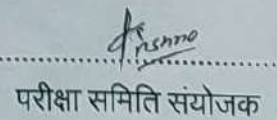 परीक्षा समिति संयोजक